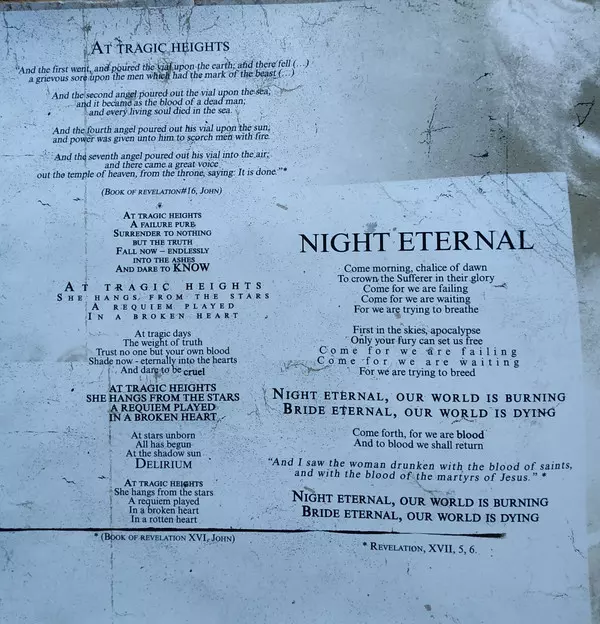 AT TRAGIC HEIGHTS
"And the first went, and poured the vial upon the earth; and there fell (...)
a grievous sore upon the men which had the mark of the beast (...)
And the second angel poured out the vial upon the sea;
and it became as the blood of a dead man;
and every living soul died in the sea.
And the fourth angel poured out his vial upon the sun;
and power was given unto him to scorch men with fire.
And the seventh angel poured out his vial into the air;
and there came a great voice
out the temple of heaven, from the throne, saying: It is done."*
(BOOK OF REVELATION#16, JOHN)
*
AT TRAGIC HEIGHTS
A FAILURE PURE
SURRENDER TO NOTHING
BUT THE TRUTH
FALL NOW – ENDLESSLY
INTO THE ASHES
AND DARE TO KNOW
AT TRAGIC HEIGHTS
SHE HANGS FROM THE STARS
A REQUIEM PLAYED
IN A BROKEN HEART
At tragic days
The weight of truth
Trust no one but your own blood
Shade now - eternally into the hearts
And dare to be cruel
AT TRAGIC HEIGHTS
SHE HANGS FROM THE STARS
A REQUIEM PLAYED
IN A BROKEN HEART
At stars unborn
All has begun
At the shadow sun
DELIRIUM
AT TRAGIC HEIGHTS
She hangs from the stars
A requiem played
In a broken heart
In a rotten heart
* (BOOK OF REVELATION XVI, JOHN)
NIGHT ETERNAL
Come morning, chalice of dawn
To crown the Sufferer in their glory
Come for we are failing
Come for we are waiting
For we are trying to breathe
First in the skies, apocalypse
Only your fury can set us free
Come for we are failing
Come for we are waiting
For we are trying to breed
NIGHT ETERNAL, OUR WORLD IS BURNING
BRIDE ETERNAL, OUR WORLD IS DYING
Come forth, for we are blood
And to blood we shall return
"And I saw the woman drunken with the blood of saints,
and with the blood of the martyrs of Jesus." *
NIGHT ETERNAL, OUR WORLD IS BURNING
BRIDE ETERNAL, OUR WORLD IS DYING
* REVELATION, XVII, 5, 6.